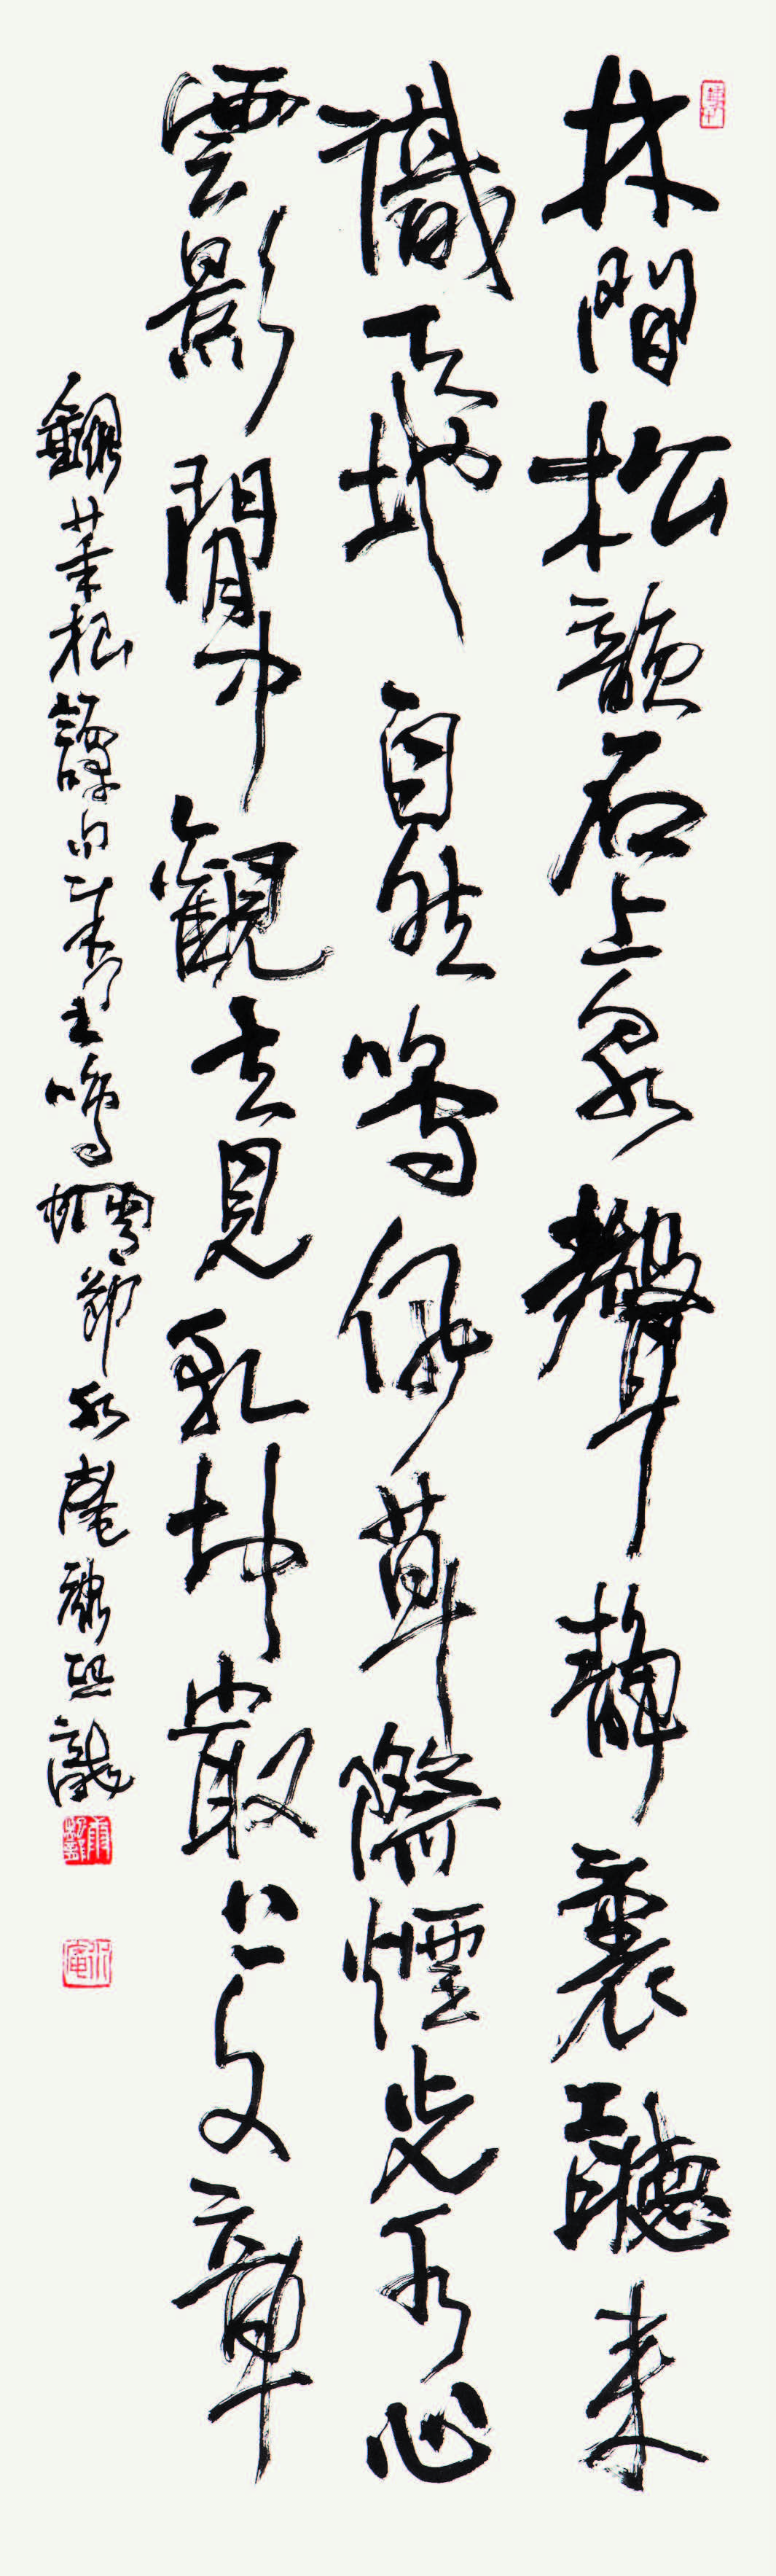 林間松韻石上泉聲靜裏聽來
識天地自然鳴佩草際煙光水心
雲影閒中觀去見乾坤最上文章
錄菜根譚句 鳴蜩節 菴 熙龍